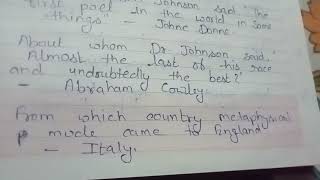 Johnson said "the
first poet in the world in some
things" - Johne Donne.
About whom Dr. Johnson said,
'Almost the last of his race
and undoubtedly the best?'
- Abraham Cowley.
From which country metaphysical
P mode came to England
- Italy.